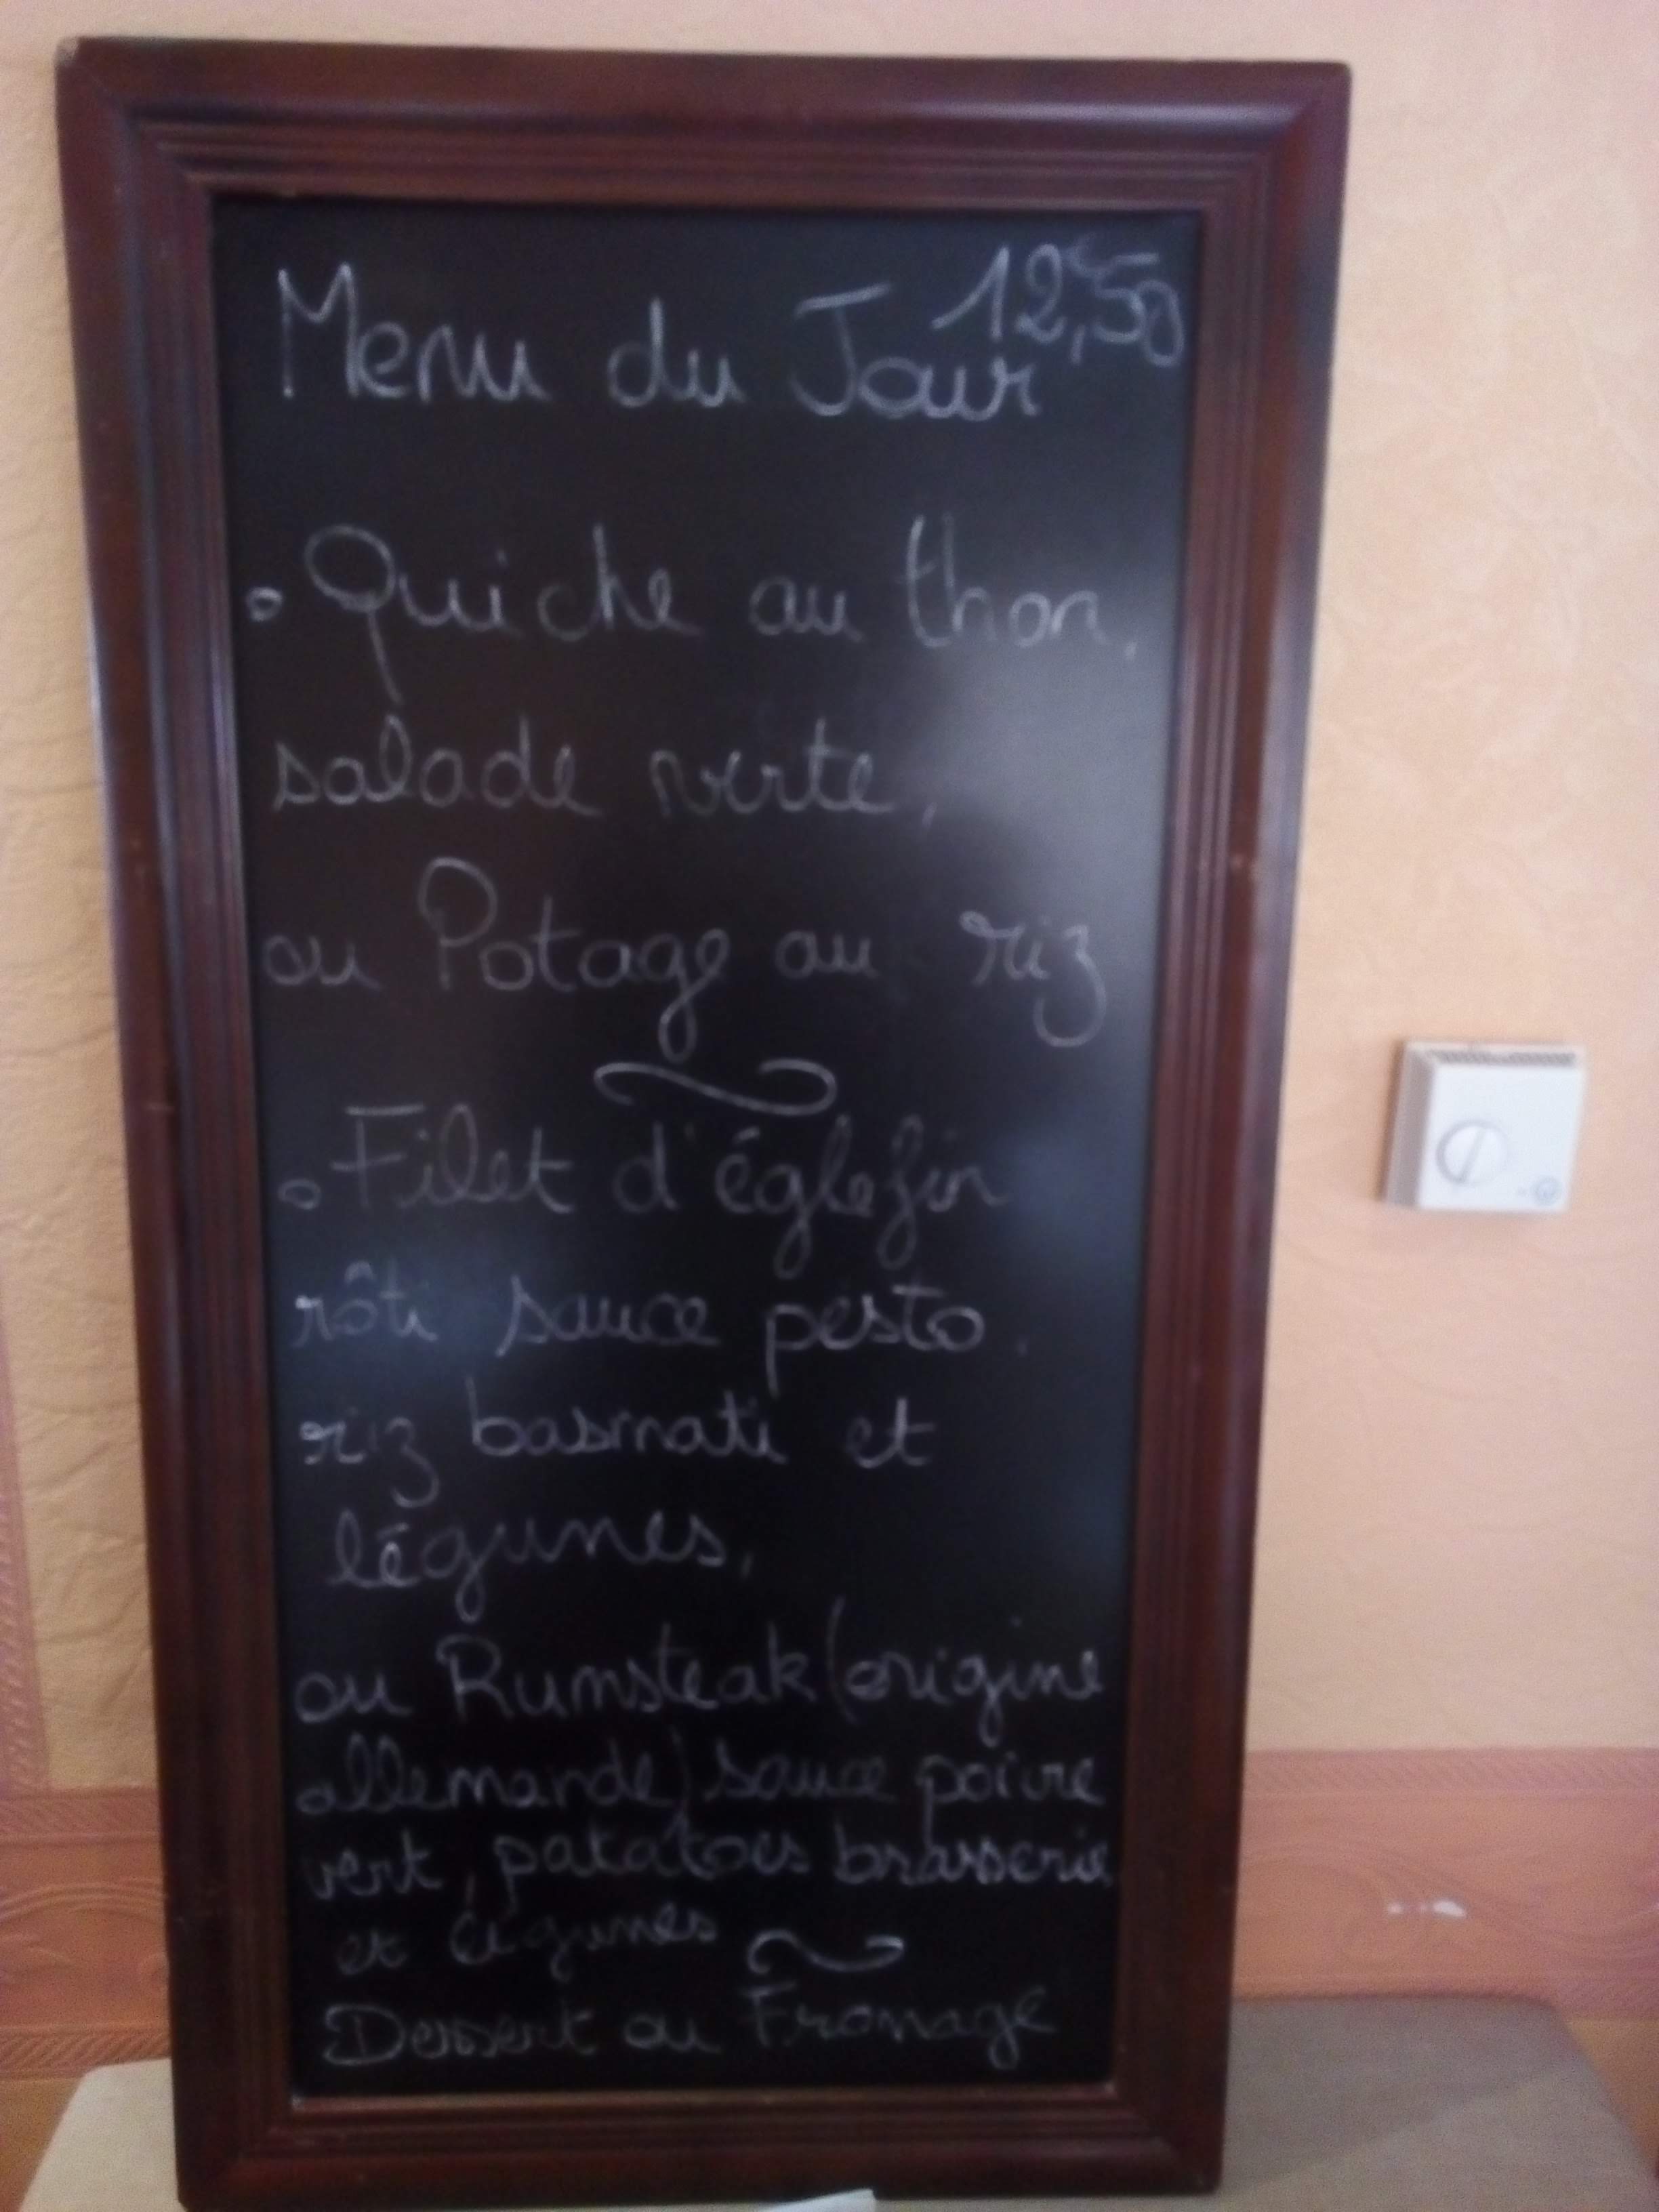 Menu du Jour 12,50
Quiche au thon,
salade verte,
ou Potage au riz
Filet d'églefin
rôti sauce pesto.
riz basmati et
légumes,
ou Rumsteak (origine
allemande) sauce poivre
vert, patatoes brasserie
et légumes
Dessert ou Fromage